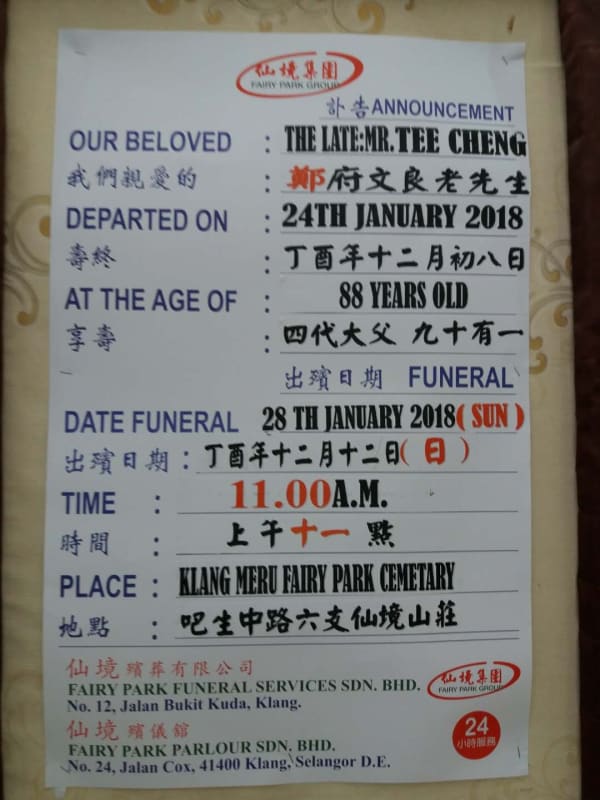 仙境集團
FAIRY PARK GROUP
訃告ANNOUNCEMENT
OUR BELOVED : THE LATE:MR.TEE CHENG
我們親愛的 : 鄭府文良老先生
DEPARTED ON : 24TH JANUARY 2018
壽終 : 丁酉年十二月初八日
AT THE AGE OF : 88 YEARS OLD
享壽 : 四代大父 九十有一
出殯日期 FUNERAL
DATE FUNERAL 28 TH JANUARY 2018( SUN )
出殯日期 : 丁酉年十二月十二日( 日 )
TIME : 11.00A.M.
時間 : 上午十一點
PLACE : KLANG MERU FAIRY PARK CEMETARY
地點 : 吧生中路六支仙境山莊
仙境殯葬有限公司
FAIRY PARK FUNERAL SERVICES SDN. BHD.
No. 12, Jalan Bukit Kuda, Klang.
仙境集團
FAIRY PARK GROUP
仙境殯儀館
FAIRY PARK PARLOUR SDN. BHD.
No. 24, Jalan Cox, 41400 Klang, Selangor D.E.
24
小時服務